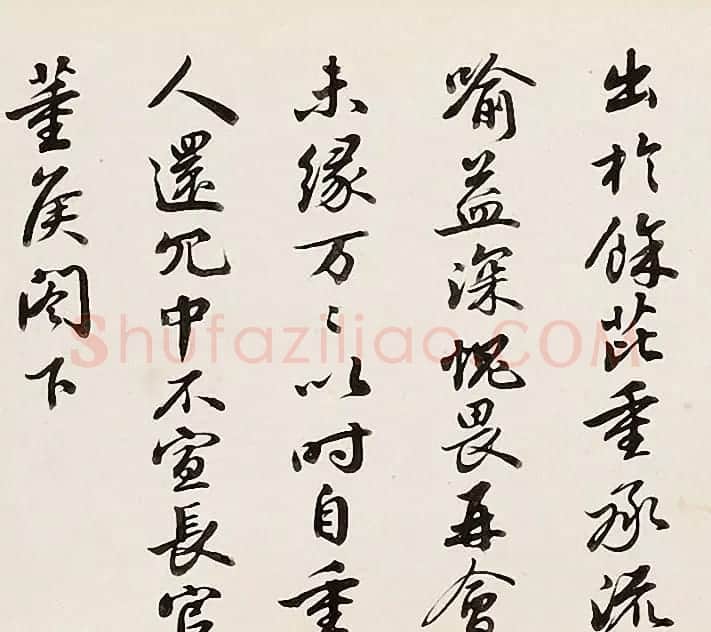 出於餘芘重承流
喻益深愧畏再會
未緣万〻以時自重
人還冗中不宣長官
董侯閣下
Shufaziliao.COM